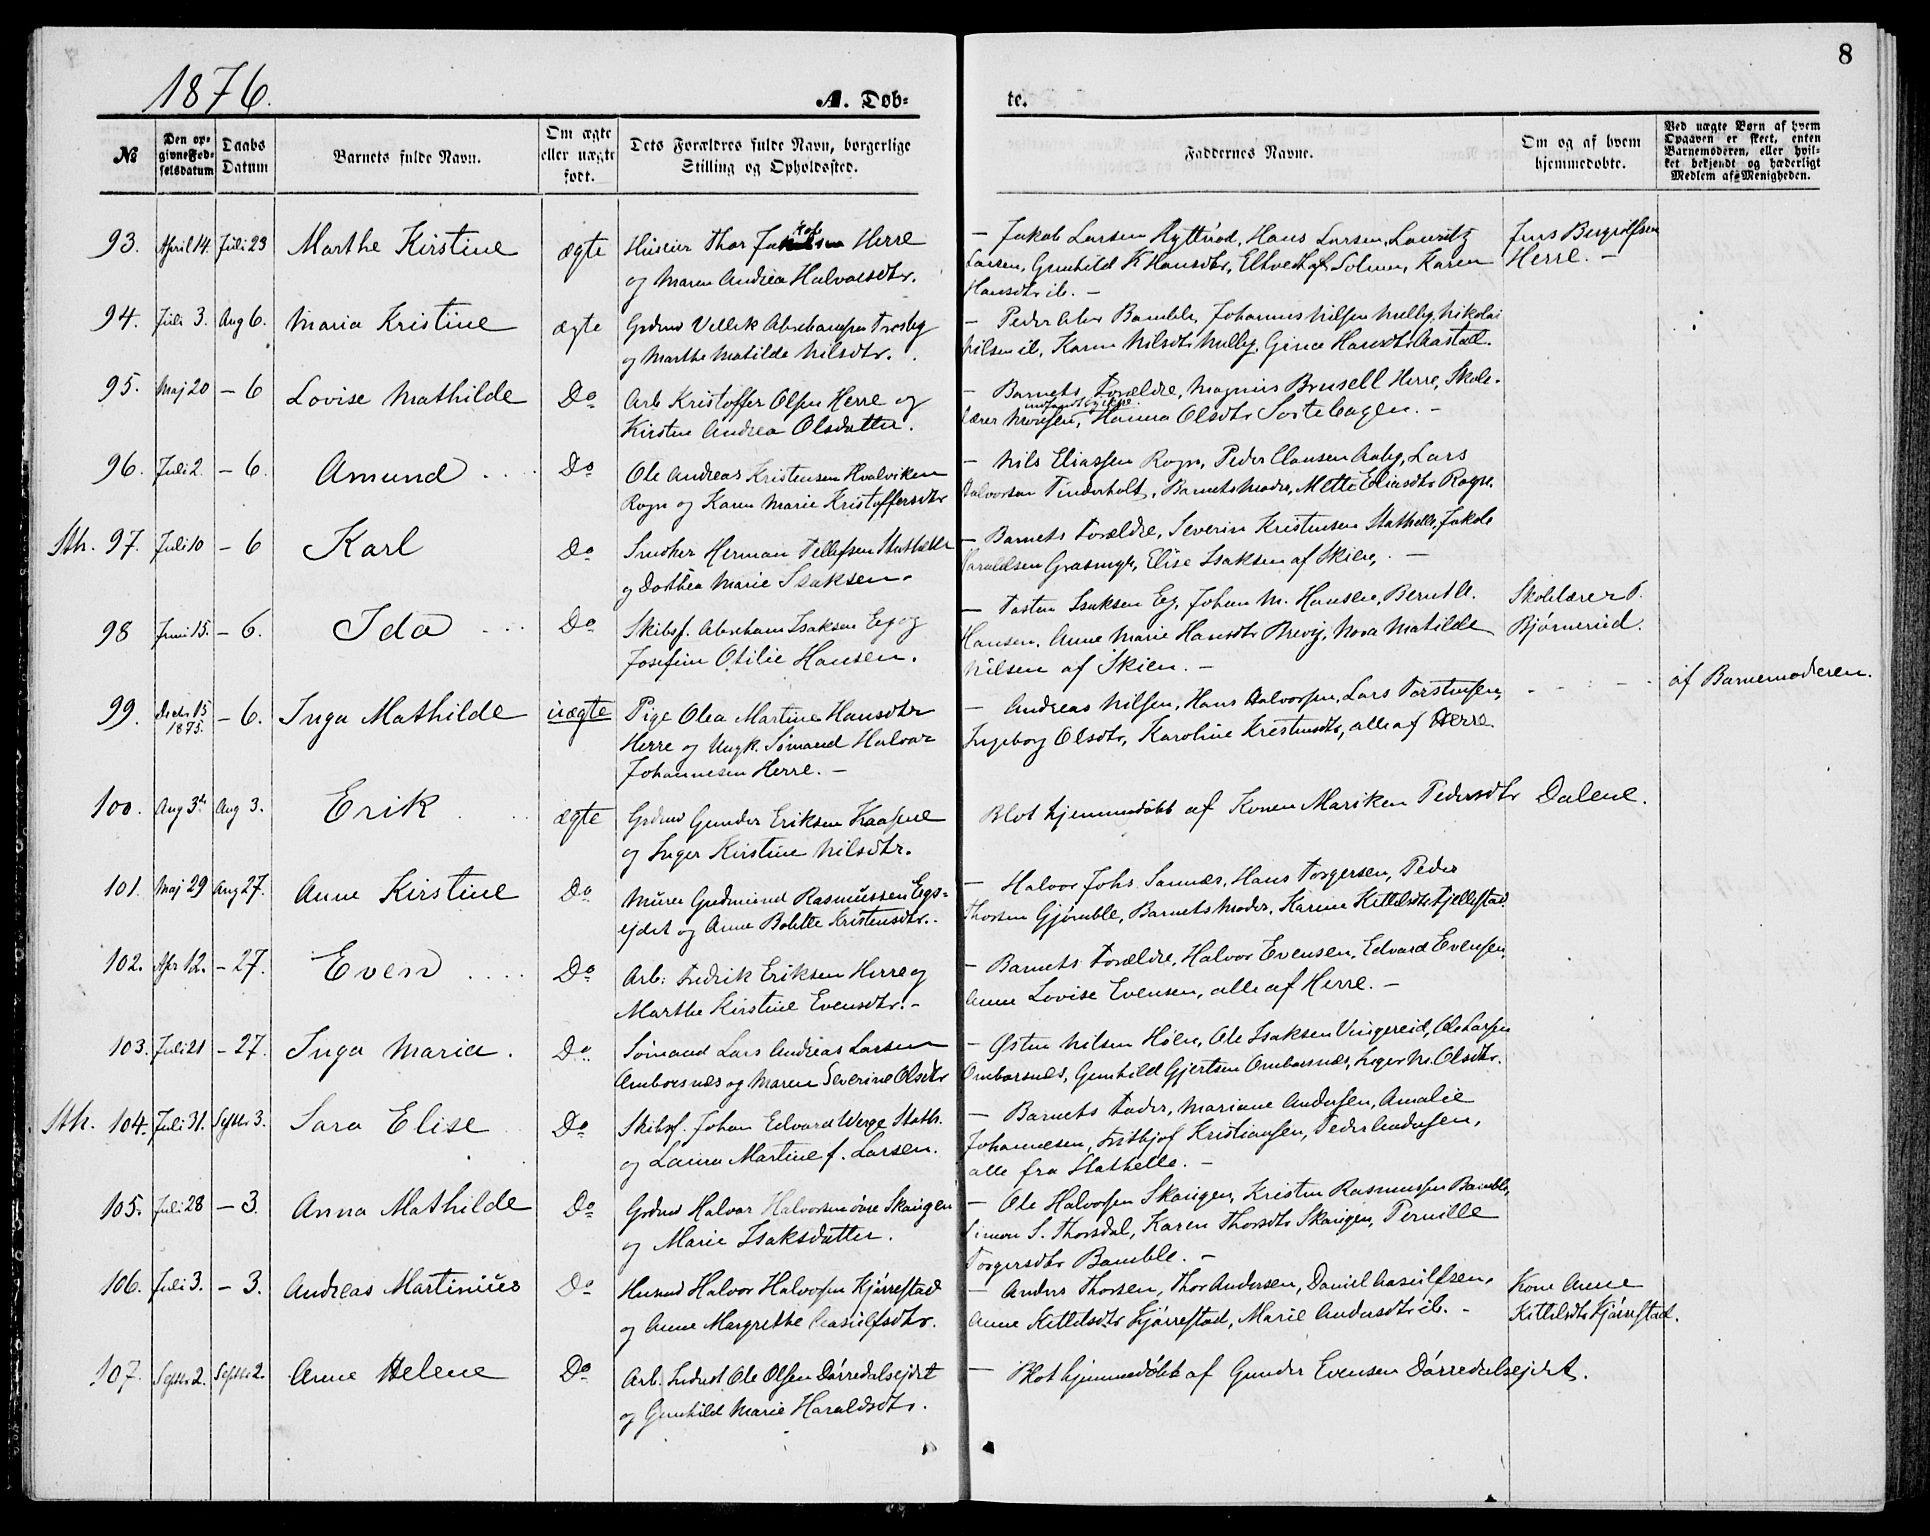 8
1876.
A. Døb-
te.
№
Den op-
givne Fød-
selsdatum
Daabs
Datum
Barnets fulde Navn.
Om ægte
eller uægte
født.
Dets Forældres fulde Navn, borgerlige
Stilling og Opholdssted.
Faddernes Navne.
Om og af hvem
hjemmedøbte.
Ved uægte Børn af hvem
Opgaven er skeet, enten
Barnemoderen, eller hvil-
ket bekjendt og hæderligt
Medlem af Menigheden.
93. April 14. Juli 23 Marthe Kirstine ægte Huseier Thor Herre
og Maren Andrea Halvorsdtr.
– Jakob Larsen Hytterød, Hans Larsen, Lauritz
Larsen, Gunhild K Hansdtr, af Solum, Karen
Hansdtr ib. –
Jens
Herre. –
94. Juli 3. Aug 6. Maria Kristine ægte Grdmd Vellik Abrahamsen Trosby
og Marthe Matilde Nilsdtr.
– Peder Bamble, Johannes Nilsen Melby, Nikolai
Nilsen ib, Karen Nilsdtr Melby, Gina Hansdtr Aastad.
95. Maj 20 – 6 Lovise Mathilde Do Arb Kristoffer Olsen Herre og
Kirsten Andrea Olsdatter.
– Barnets Forældre, Magnus Brusell Herre, Skole-
lærer Hanna Olsdtr Sortebogen. –
96. Juli 2 – 6. Amund Do Ole Andreas Kristensen Hvalviken
Rogn og Karen Marie Kristoffersdtr
– Nils Eliassen Rogn, Peder Clausen Aaby, Lars
Halvorsen Tinderholt, Barnets Moder, Mette Eliasdtr Rogn.
Sth. 97. Juli 10 – 6 Karl Do Snedker Herman Tellefsen Stathelle
og Dorthea Marie Isaksen.
– Barnets Forældre, Severin Kristensen Stathelle, Jakob
Haraldsen Grasmyr, Elise Isaksen af Skien, –
98 Juni 15. – 6. Ida Do Skibsf. Abraham Isaksen Eg og
Josefine Otilie Hansen.
– Tosten Isaksen Eg, Johan M. Hansen, Bernt
Hansen, Anne Marie Hansdtr Brevig, Nora Matilde
Nilsen af Skien. –
Skolelærer T.
Bjørnerud.
99. Decbr 15 1875. – 6. Inga Mathilde uægte Pige Olea Martine Hansdtr
Herre og Ungk. Sømand Halvor
Johannesen Herre. –
– Andreas Nilsen, Hans Halvorsen, Lars Torstensen,
Ingeborg Olsdtr, Karoline Kristensdtr, alle af Herre.
af Barnemoderen.
100. Aug 3die Aug 3. Erik ægte Grdmd Gunder Eriksen Kaasene
og Inger Kirstine Nilsdtr.
Blot hjemmedøbt af Konen Mariken Pedersdtr Dalene.
101. Maj 29 Aug 27. Anne Kirstine Do Murer Gudmund Rasmussen Eegs-
ejdet og Anne Bolette Kristensdtr.
– Halvor Johs. Sannæs, Hans Torgersen, Peder
Thorsen Gjømble, Barnets Moder, Karine Kittilsdtr Fjellestad.
102. Apr 12. – 27. Even Do Arb: Fredrik Eriksen Herre og
Marthe Kirstine Evensdtr. –
– Barnets Forældre, Halvor Evensen, Edvard Evensen,
Anne Lovise Evensen, alle af Herre. –
103. Juli 21 – 27. Inga Maria. Do Sømand Lars Andreas Larsen
Omborsnæs og Maren Severine Olsdtr
– Østen Nilsen Høen, Ole Isaksen Vingereid, Ole Larsen
Ombarsnæs, Gunhild Gjertsen Ombarsnæs, Inger M. Olsdtr.
Sth. 104. Juli 31. Septbr 3. Sara Elise Do Skibsf. Johan Edvard Werge Stath.
og Laura Martine f. Larsen.
– Barnets Fader, Mariane Andersen, Amalie
Johannesen, Frithjof Kristiansen, Peder Andersen,
alle fra Stathelle. –
105. Juli 28 – 3. Anna Mathilde Do Grdmd Halvor Halvorsen øvre Skaugen
og Marie Isaksdatter.
– Ole Halvorsen Skaugen, Kristen Rasmussen Bamble,
Simon S. Thorsdal, Karen Thorsdtr Skaugen, Pernille
Torgersdtr Bamble. –
106. Juli 3. – 3. Andreas Martinius Do Husmd Halvor Halvorsen Kjørrestad
og Anne Margrethe Aasulfsdtr.
– Anders Thorsen, Thor Andersen, Daniel Aasulfsen,
Anne Kittilsdtr Kjørrestad, Marie Andersdtr ib. –
Kone Anne
Kittilsdtr Kjørrestad.
107. Septbr 2. Septbr 2. Anne Helene Do Arb. Indrst Ole Olsen Dørredalsejdet
og Gunhild Marie Haraldsdtr.
– Blot hjemmedøbt af Gunder Evensen Dørredalsejdet.